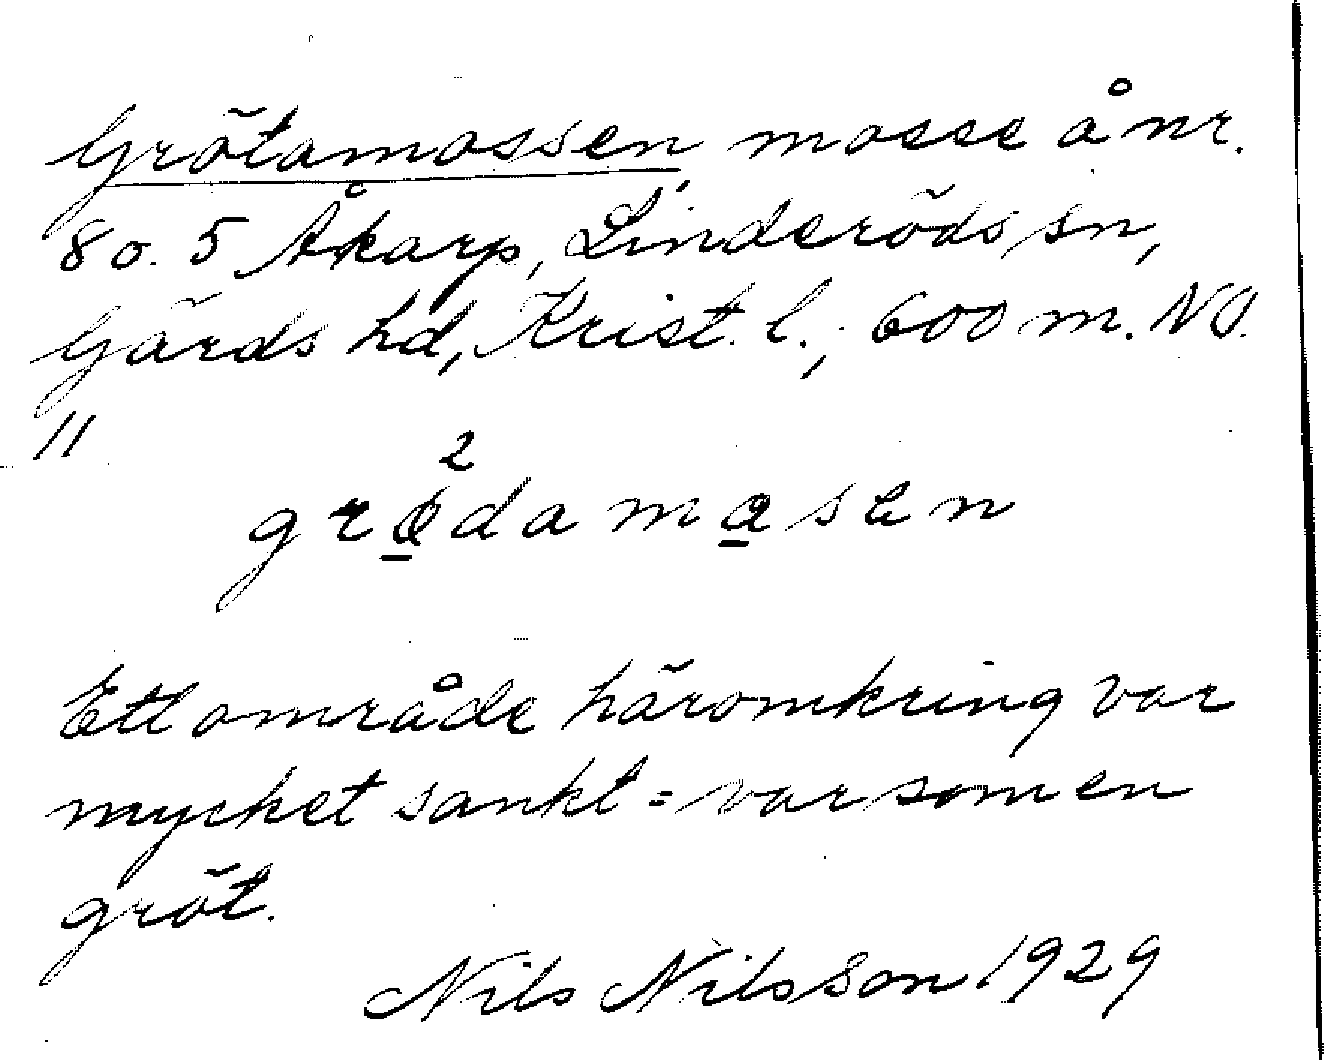 Grötamossen mosse å nr.
8 o. 5 Åkarp, Linderöds sn,
Gärds hd, Krist. l.; 600 m. NO.
11
2
grø̲damo̲sen
Ett område häromkring var
mycket sankt = var som en
gröt.
Nils Nilsson 1929